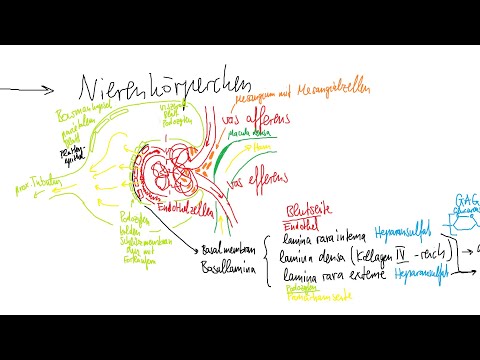 Nierenkörperchen
Bowmankapsel
parietales
Blatt
Plattenepithel
viszerales
Blatt
Podozyten
Mesangium mit Mesangialzellen
vas afferens
Macula densa
Harn
prox. Tubulus
vas efferens
Podozyten
bilden
Schlitzmembran
aus mit
Fortsätzen
Endothelzellen
Blutseite
Endothel
Basalmembran
Basallamina
lamina rara interna Heparansulfat
lamina densa (Kollagen IV - reich)
lamina rara externa Heparansulfat
Podozyten
Primärharnseite
GAG